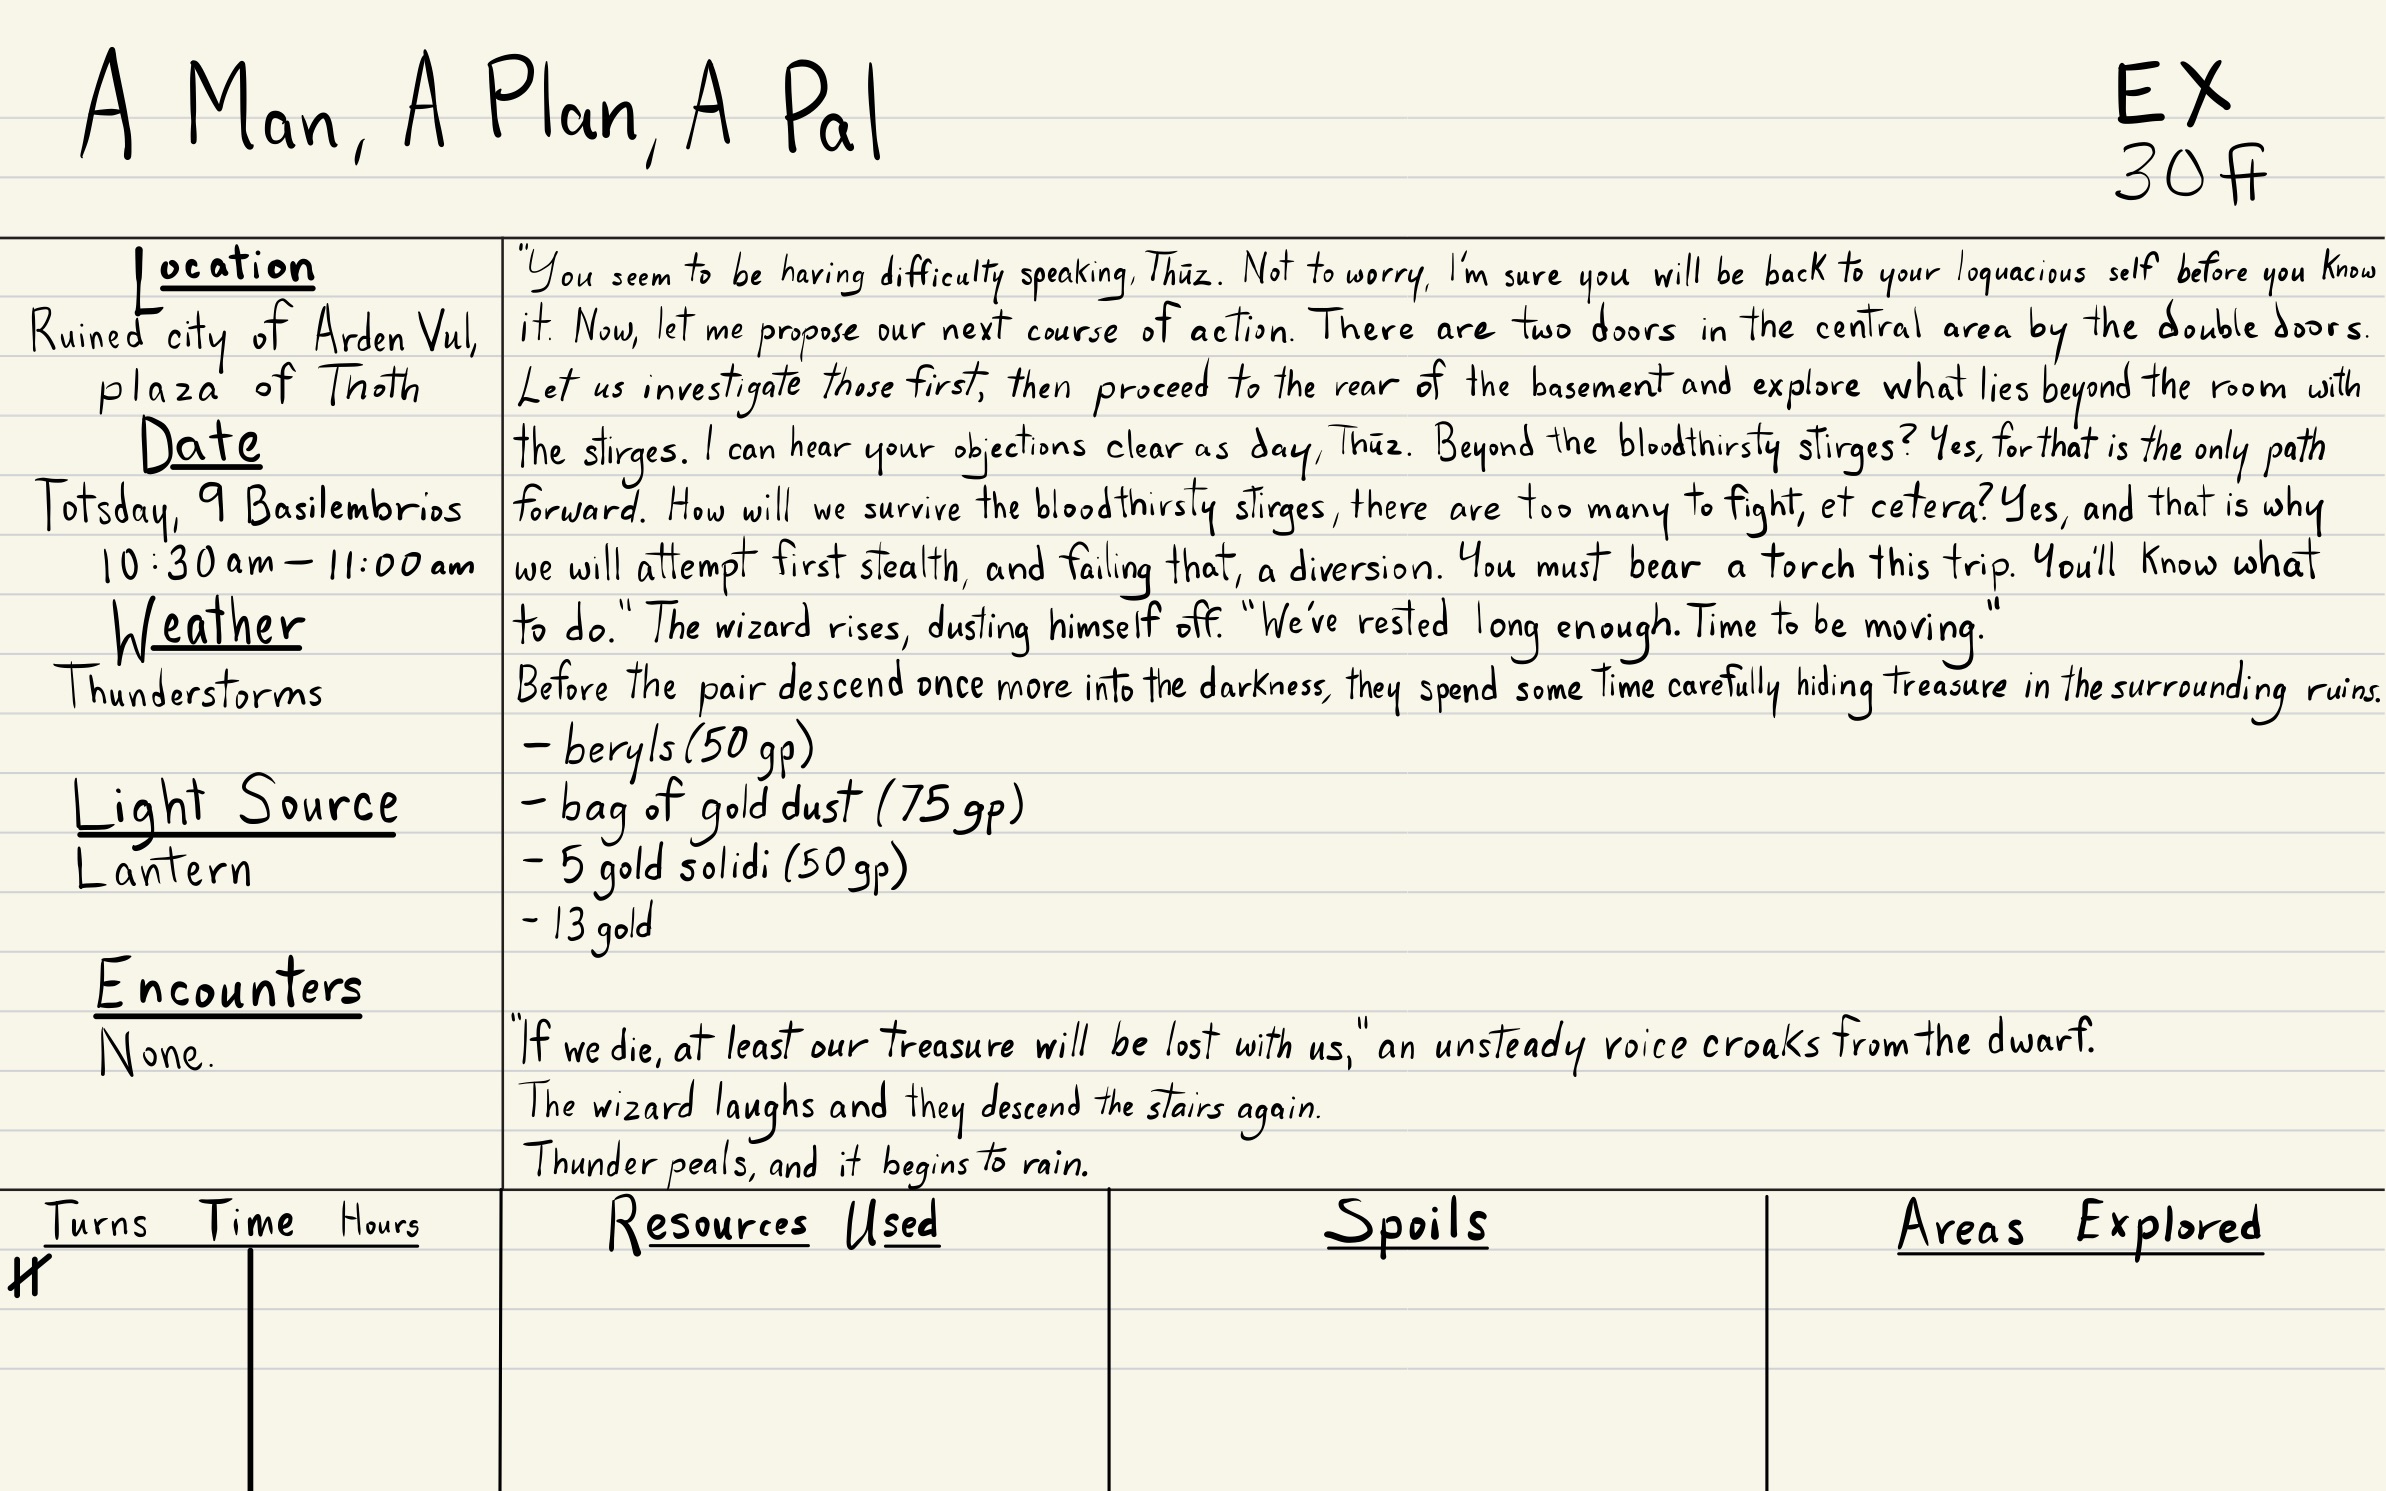 A Man, A Plan, A Pal
EX
30 ft
Location
Ruined city of Arden Vul,
plaza of Thoth
Date
Totsday, 9 Basilembrios
10:30 am – 11:00 am
Weather
Thunderstorms
Light Source
Lantern
Encounters
None.
"You seem to be having difficulty speaking, Thūz. Not to worry, I'm sure you will be back to your loquacious self before you know
it. Now, let me propose our next course of action. There are two doors in the central area by the double doors.
Let us investigate those first, then proceed to the rear of the basement and explore what lies beyond the room with
the stirges. I can hear your objections clear as day, Thūz. Beyond the bloodthirsty stirges? Yes, for that is the only path
forward. How will we survive the bloodthirsty stirges, there are too many to fight, et cetera? Yes, and that is why
we will attempt first stealth, and failing that, a diversion. You must bear a torch this trip. You'll know what
to do." The wizard rises, dusting himself off. "We've rested long enough. Time to be moving."
Before the pair descend once more into the darkness, they spend some time carefully hiding treasure in the surrounding ruins.
– beryls (50 gp)
– bag of gold dust (75 gp)
– 5 gold solidi (50 gp)
– 13 gold
"If we die, at least our treasure will be lost with us," an unsteady voice croaks from the dwarf.
The wizard laughs and they descend the stairs again.
Thunder peals, and it begins to rain.
Turns Time Hours
Resources Used
Spoils
Areas Explored